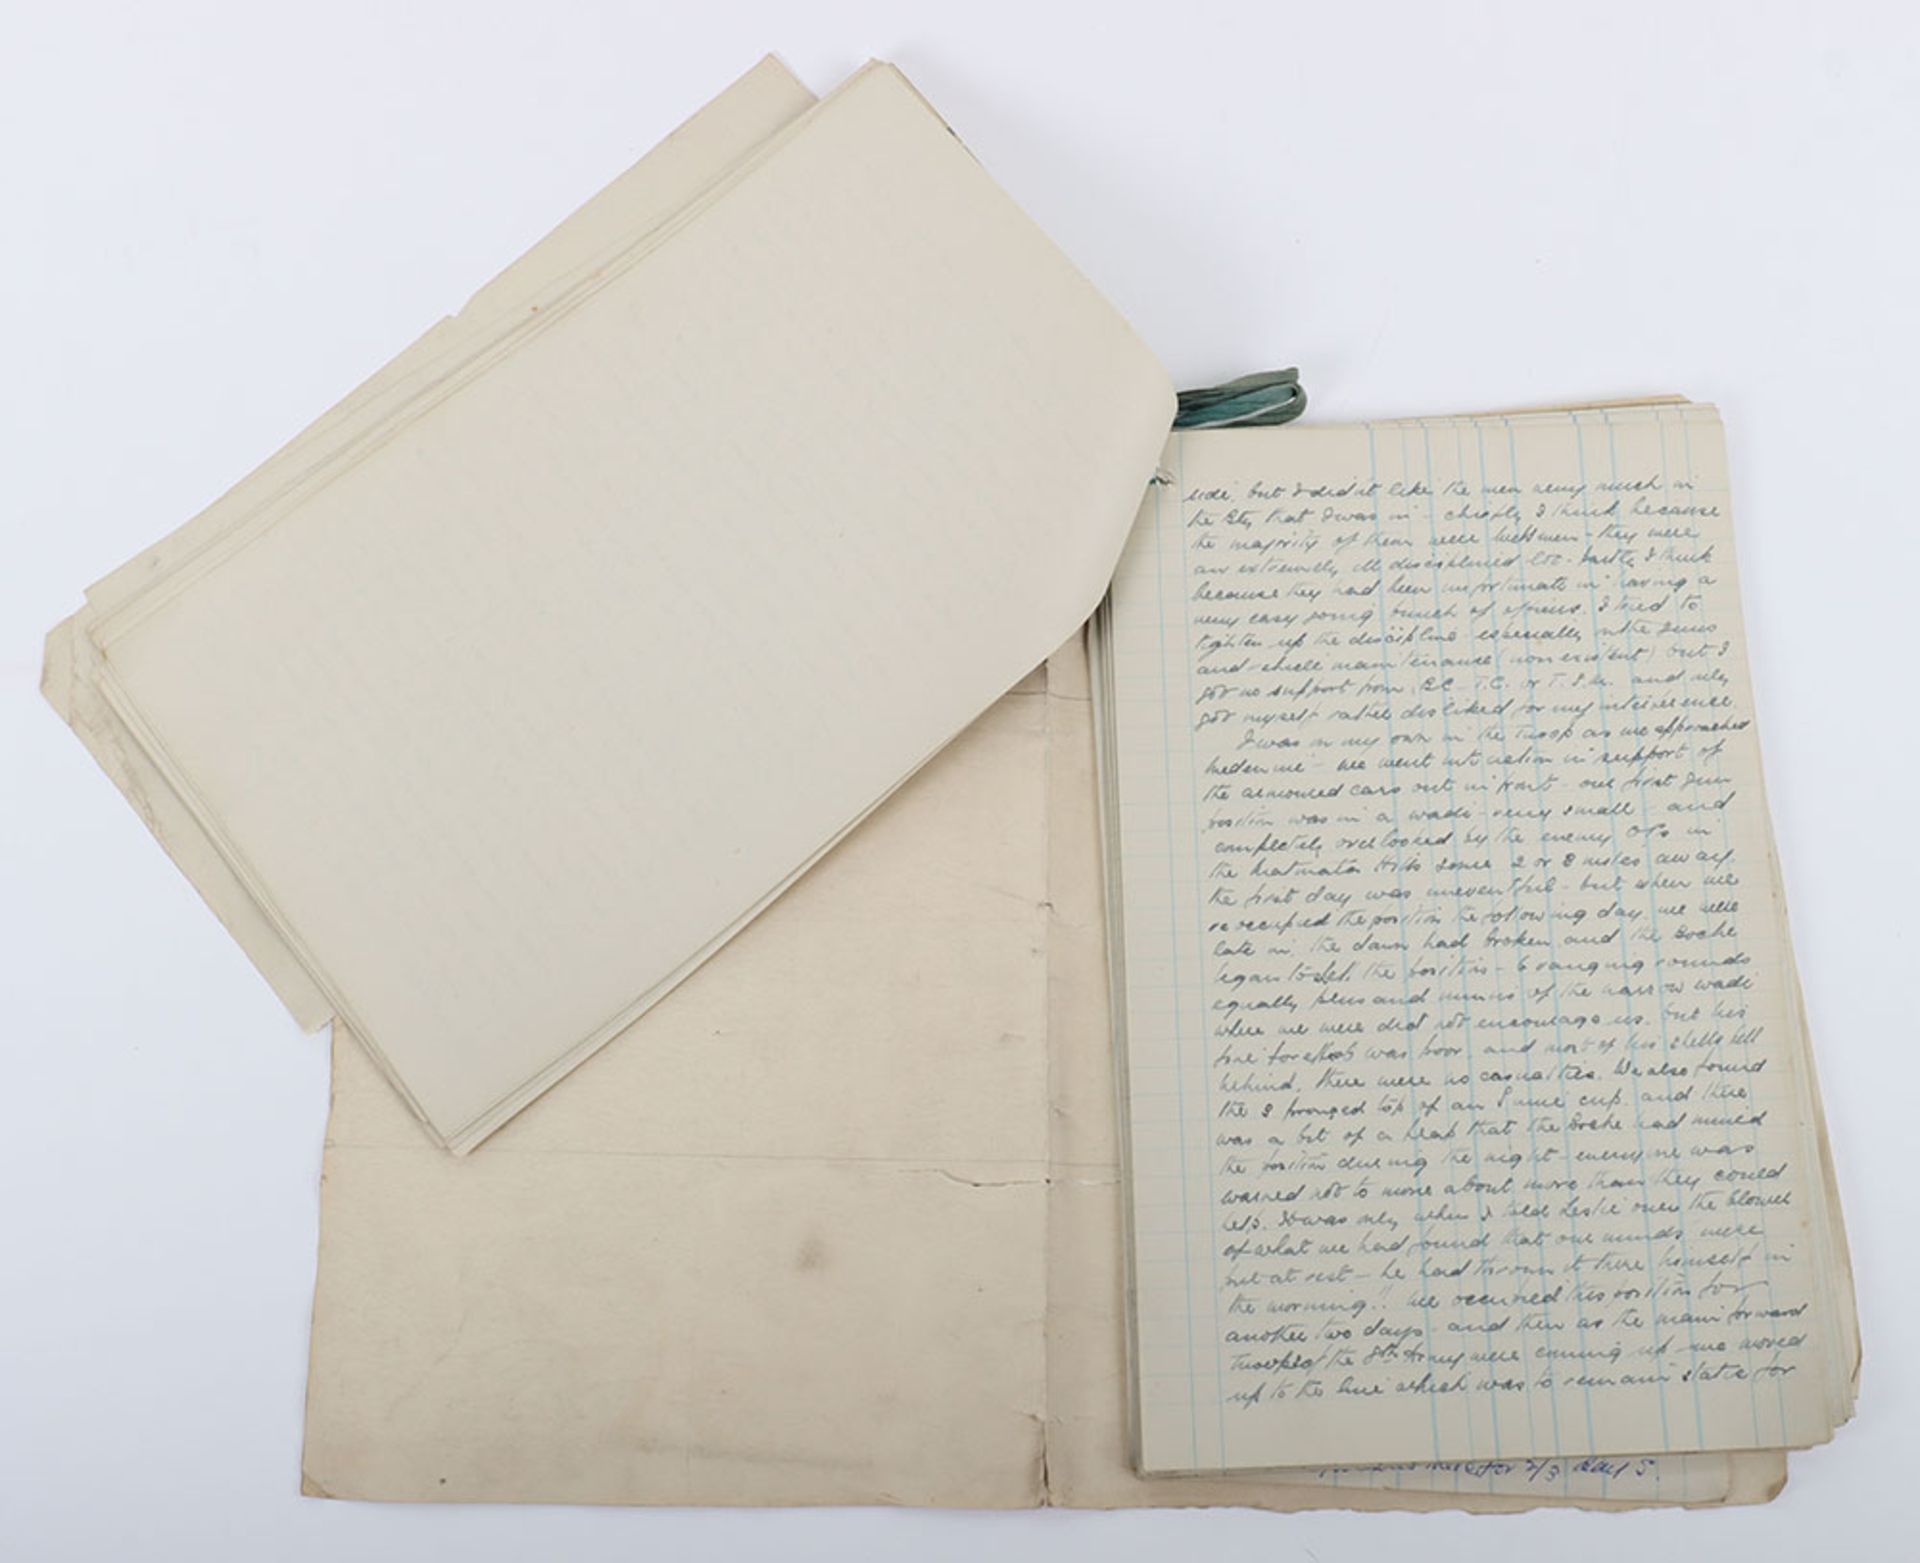 side, but I didn't like the men very much in
the Bty that I was in - chiefly I think because
the majority of them were - they were
an extremely ill disciplined lot - partly I think
because they had been unfortunate in having a
very easy going bunch of officers. I tried to
tighten up the discipline especially in the guns
and vehicle maintenance (non existent) but I
got no support from B.C. T.C. or T.S.M. and only
got myself rather disliked for my interference.
I was on my own in the Troop as we approached
Medenine - we went into action in support of
the armoured cars out in front - our first gun
position was in a wadi - very small - and
completely overlooked by the enemy OPs in
the Matmata Hills some 2 or 3 miles away.
the first day was uneventful - but when we
reoccupied the position the following day we were
late in, the dawn had broken and the Boche
began to shell the position - 6 ranging rounds
equally plus and minus of the narrow wadi
where we were did not encourage us. but his
fire for effect was poor, and most of his shells fell
behind. there were no casualties. We also found
the 3 pronged top of an S mine cup. and there
was a bit of a flap that the Boche had mined
the position during the night - everyone was
warned not to move about more than they could
help. It was only when I told Leslie over the blower
of what we had found that our minds were
put at rest - he had thrown it there himself in
the morning!! We occupied this position for
another two days - and then as the main forward
troops of the 8th Army were coming up - we moved
up to the line which was to remain static for
for 2/3 days.